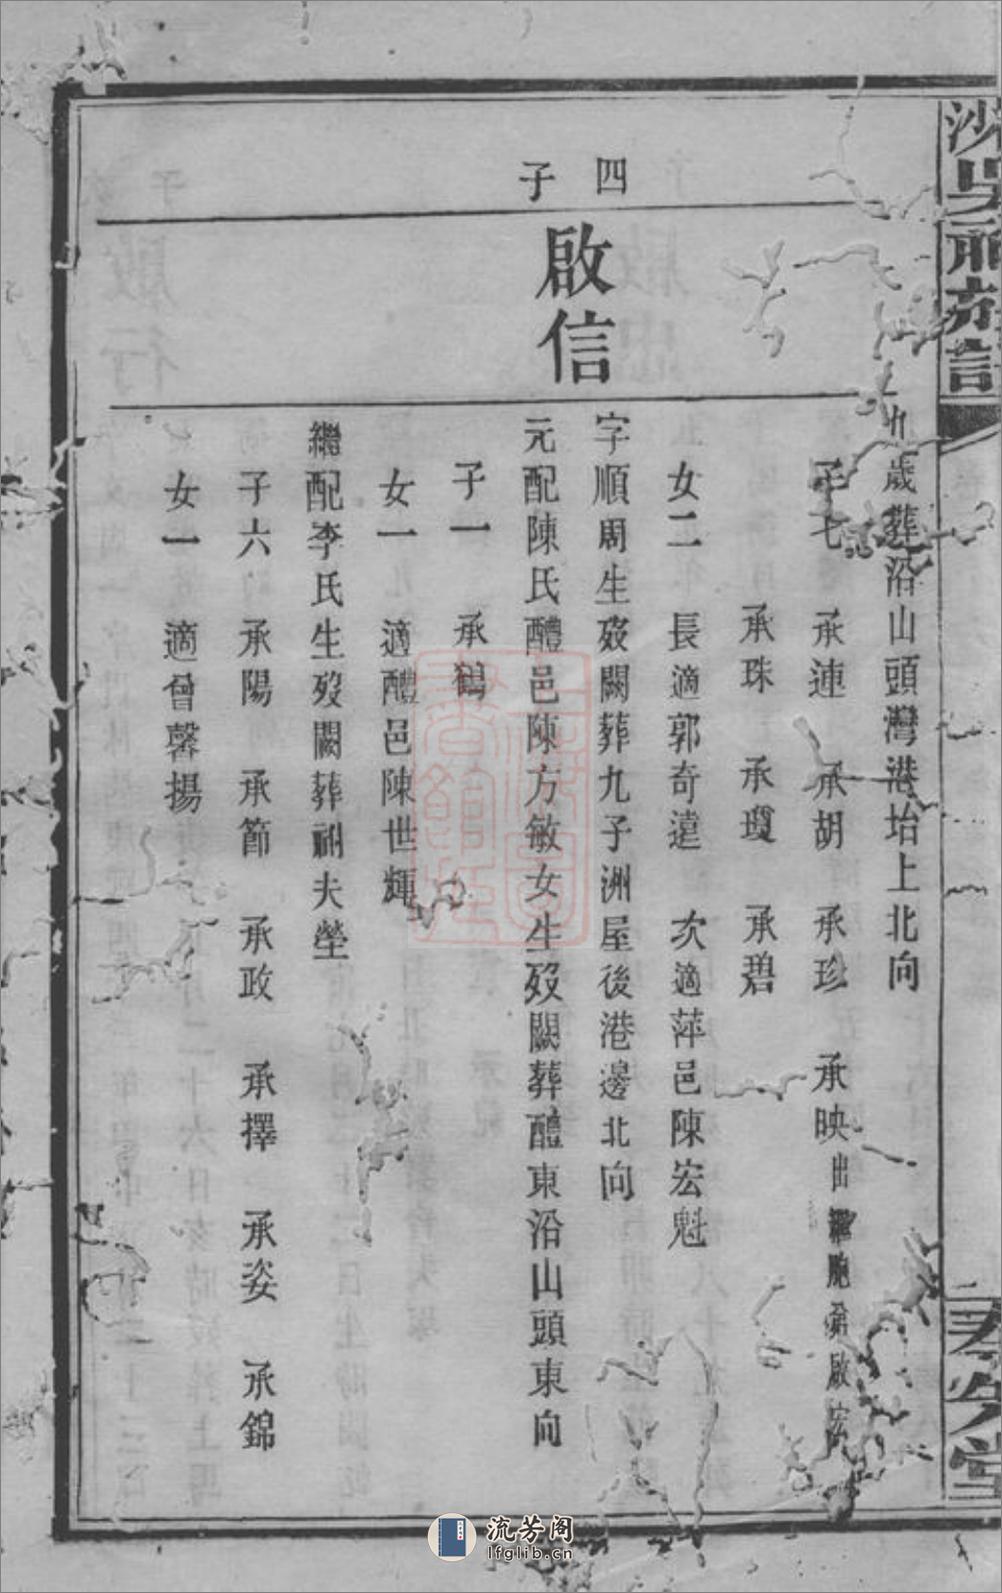 九歲葬沿山頭灣港坮上北向
子七 承連 承胡 承珍 承映出繼胞弟啟宏
承珠 承瓊 承碧
女二 長適郭奇遠 次適萍邑陳宏魁
四子
啟信
字順周生歿闕葬九子洲屋後港邊北向
元配陳氏醴邑陳方敏女生歿闕葬醴東沿山頭東向
子一 承鶴
女一 適醴邑陳世輝
繼配李氏生歿闕葬祔夫塋
子六 承陽 承節 承政 承擇 承姿 承錦
女一 適曾馨揚
流芳阁
lfglib.cn